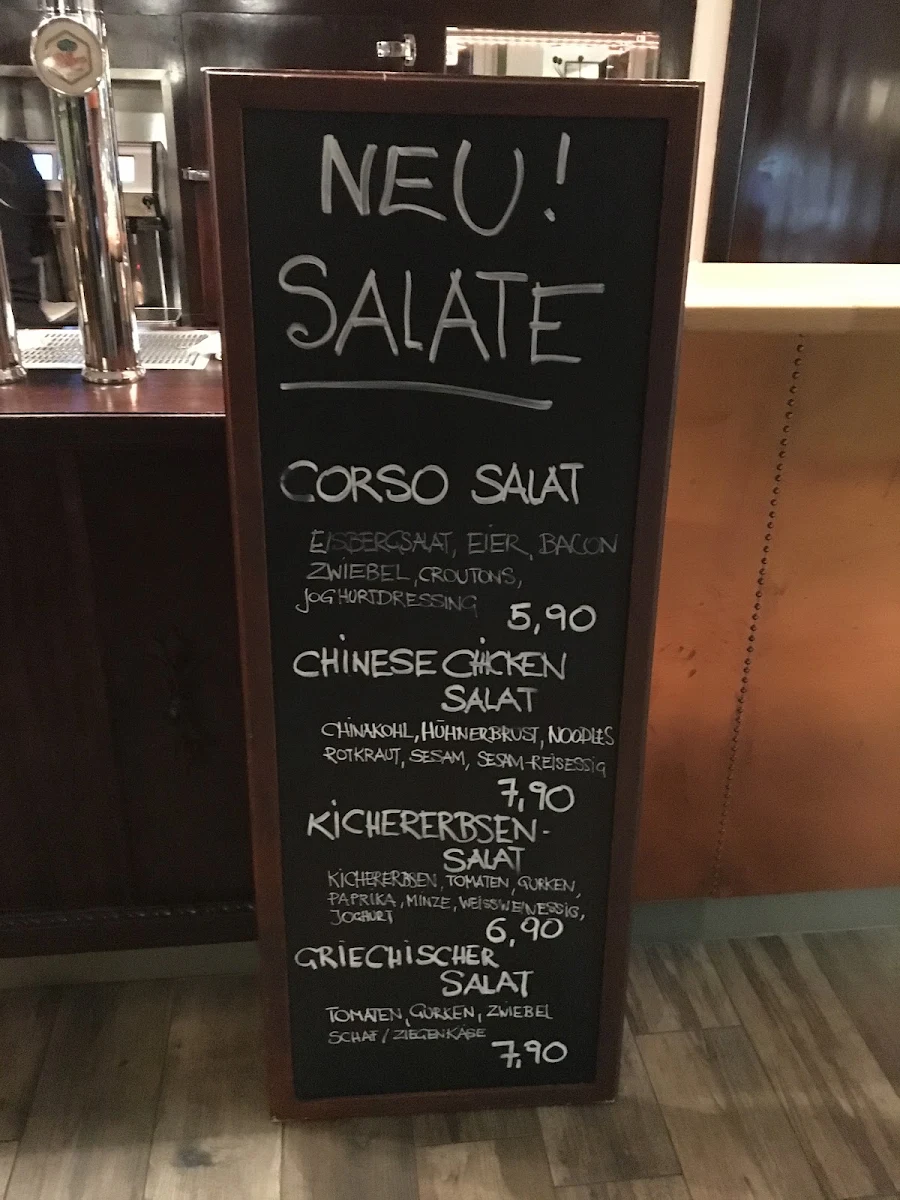 NEU!
SALATE
CORSO SALAT
EISBERGSALAT, EIER, BACON
ZWIEBEL, CROUTONS,
JOGHURTDRESSING 5,90
CHINESE CHICKEN
SALAT
CHINAKOHL, HÜHNERBRUST, NOODLES
ROTKRAUT, SESAM, SESAM-REISESSIG
7,90
KICHERERBSEN-
SALAT
KICHERERBSEN, TOMATEN, GURKEN,
PAPRIKA, MINZE, WEISSWEINESSIG,
JOGHURT 6,90
GRIECHISCHER
SALAT
TOMATEN, GURKEN, ZWIEBEL
SCHAF/ZIEGENKÄSE
7,90